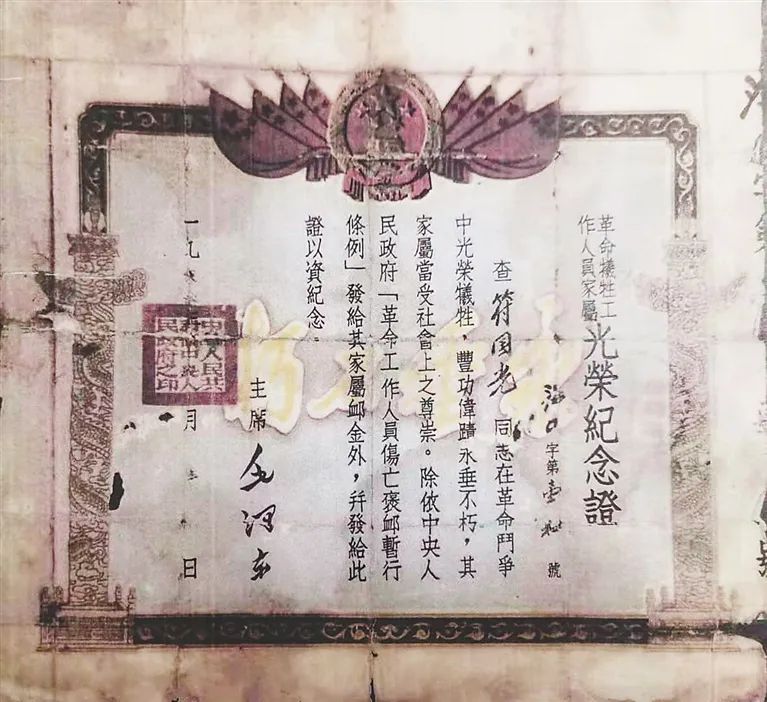 革命犧牲工
作人員家屬
光榮紀念證
字第壹 號
查符国光同志在革命鬥爭
中光榮犧牲，豐功偉蹟永垂不朽，其
家屬當受社會上之尊崇。除依中央人
民政府「革命工作人員傷亡褒卹暫行
條例」發給其家屬卹金外，幷發給此
證以資紀念。
永垂不朽
主席 毛澤东
一九 月 日
中央人民
民政府之印